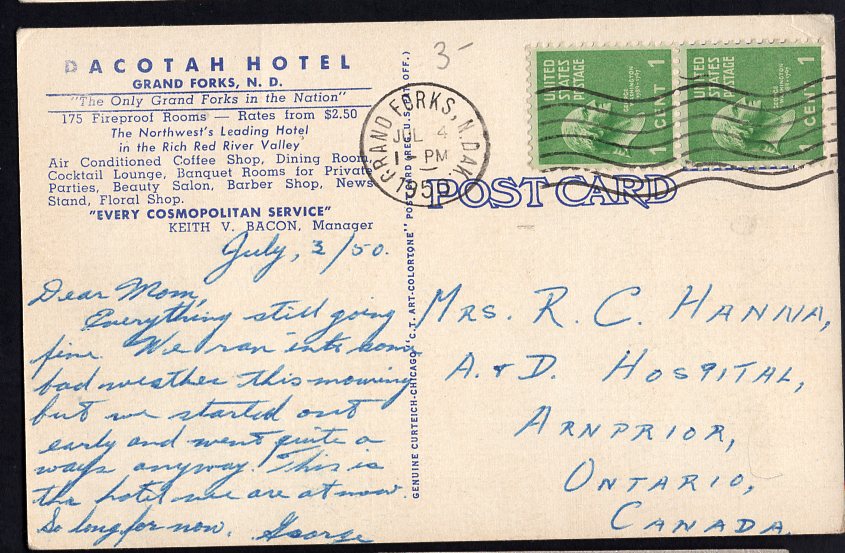 DACOTAH HOTEL
GRAND FORKS, N. D.
"The Only Grand Forks in the Nation"
175 Fireproof Rooms — Rates from $2.50
The Northwest's Leading Hotel
in the Rich Red River Valley
Air Conditioned Coffee Shop, Dining Room,
Cocktail Lounge, Banquet Rooms for Private
Parties, Beauty Salon, Barber Shop, News
Stand, Floral Shop.
"EVERY COSMOPOLITAN SERVICE"
KEITH V. BACON, Manager
July, 3/50.
Dear Mom,
Everything still going
fine. We ran into some
bad weather this morning
but we started out
early and went quite a
ways anyway. This is
the hotel we are at now.
So long for now. George
GENUINE CURTEICH-CHICAGO "C.T. ART-COLORTONE" POSTCARD (REG. U.S. PAT. OFF.)
3-
GRAND FORKS, N. DAK.
JUL 4
PM
1950
UNITED
STATES
POSTAGE
GEORGE
WASHINGTON
1 CENT
UNITED
STATES
POSTAGE
GEORGE
WASHINGTON
1 CENT 1
POST CARD
MRS. R. C. HANNA,
A. & D. HOSPITAL,
ARNPRIOR,
ONTARIO,
CANADA.